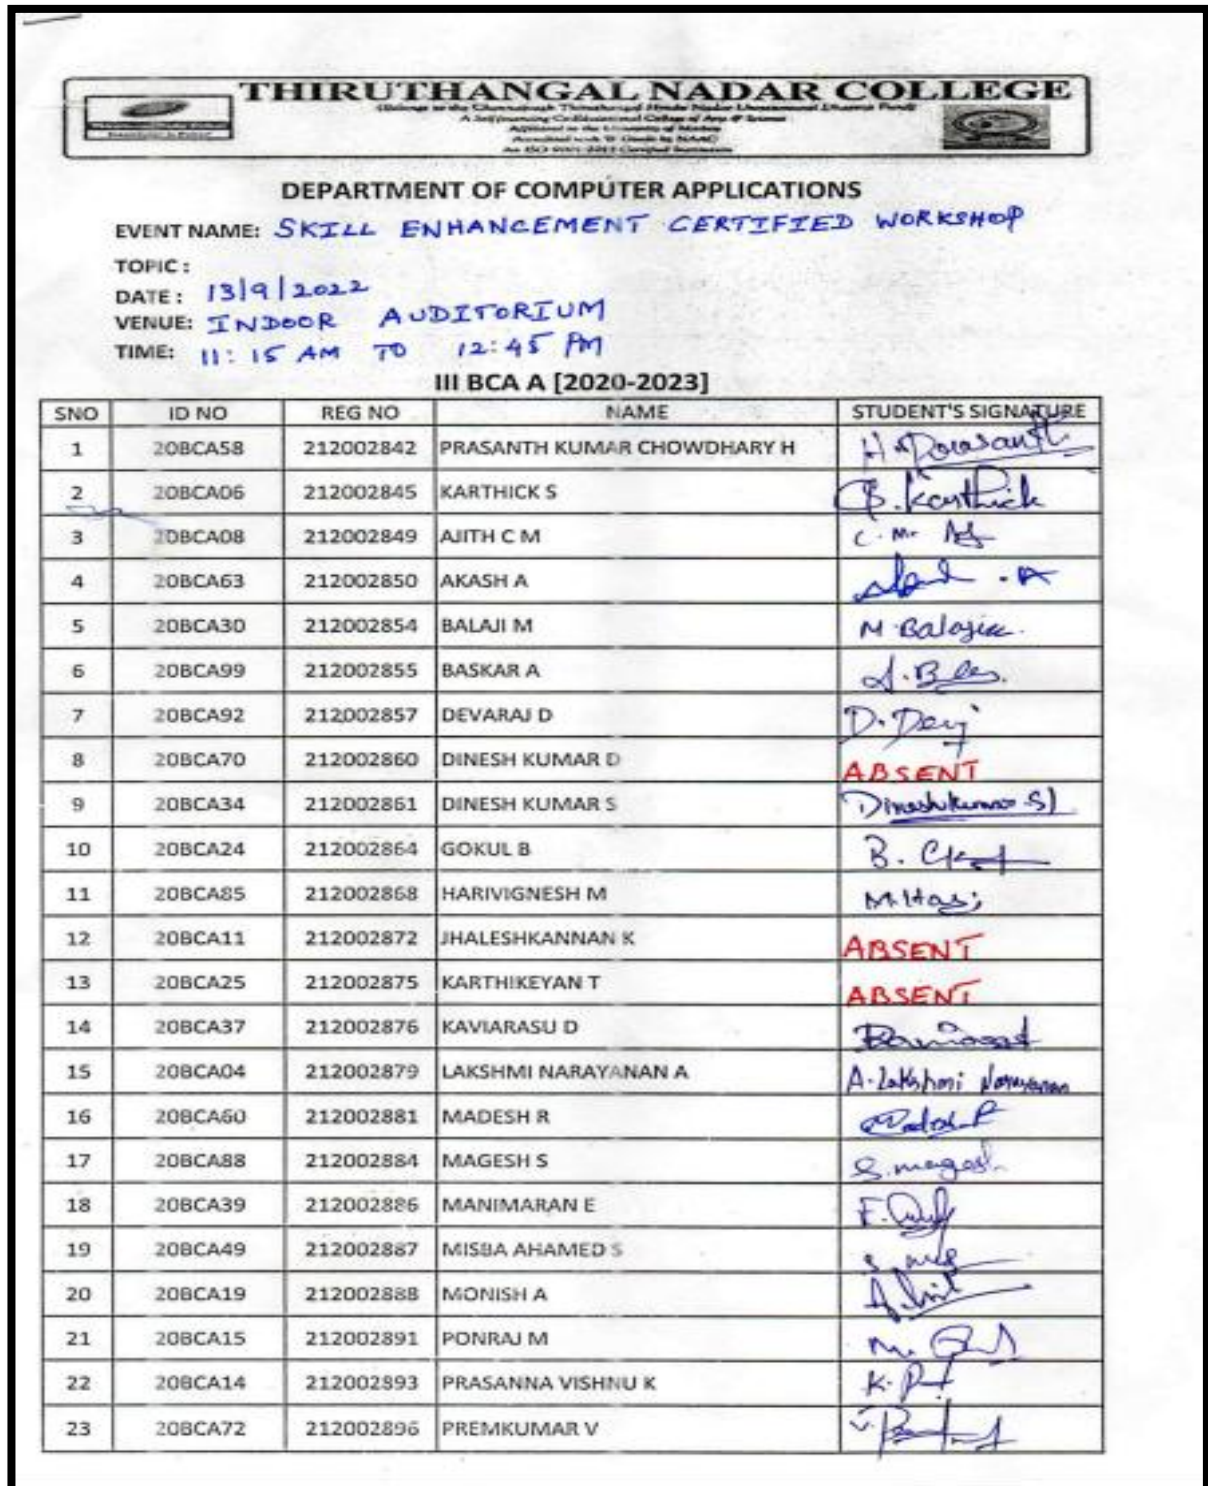 THIRUTHANGAL NADAR COLLEGE
A Self financing Co-Educational College of Arts & Science
Affiliated to the University of Madras
DEPARTMENT OF COMPUTER APPLICATIONS
EVENT NAME: SKILL ENHANCEMENT CERTIFIED WORKSHOP
TOPIC :
DATE : 13|9|2022
VENUE: INDOOR AUDITORIUM
TIME: 11:15 AM TO 12:45 PM
III BCA A [2020-2023]
SNO ID NO REG NO NAME STUDENT'S SIGNATURE
1 20BCA58 212002842 PRASANTH KUMAR CHOWDHARY H H. Prasanth
2 20BCA06 212002845 KARTHICK S S. Karthick
3 20BCA08 212002849 AJITH C M C. M.
4 20BCA63 212002850 AKASH A . A
5 20BCA30 212002854 BALAJI M M. Balaji
6 20BCA99 212002855 BASKAR A
7 20BCA92 212002857 DEVARAJ D D. Devj
8 20BCA70 212002860 DINESH KUMAR D ABSENT
9 20BCA34 212002861 DINESH KUMAR S Dineshkumar S
10 20BCA24 212002864 GOKUL B B.
11 20BCA85 212002868 HARIVIGNESH M M. Hari
12 20BCA11 212002872 JHALESHKANNAN K ABSENT
13 20BCA25 212002875 KARTHIKEYAN T ABSENT
14 20BCA37 212002876 KAVIARASU D
15 20BCA04 212002879 LAKSHMI NARAYANAN A A. Lakshmi Narayanan
16 20BCA60 212002881 MADESH R
17 20BCA88 212002884 MAGESH S S. magesh
18 20BCA39 212002886 MANIMARAN E E.
19 20BCA49 212002887 MISBA AHAMED S
20 20BCA19 212002888 MONISH A
21 20BCA15 212002891 PONRAJ M M.
22 20BCA14 212002893 PRASANNA VISHNU K K.
23 20BCA72 212002896 PREMKUMAR V V.